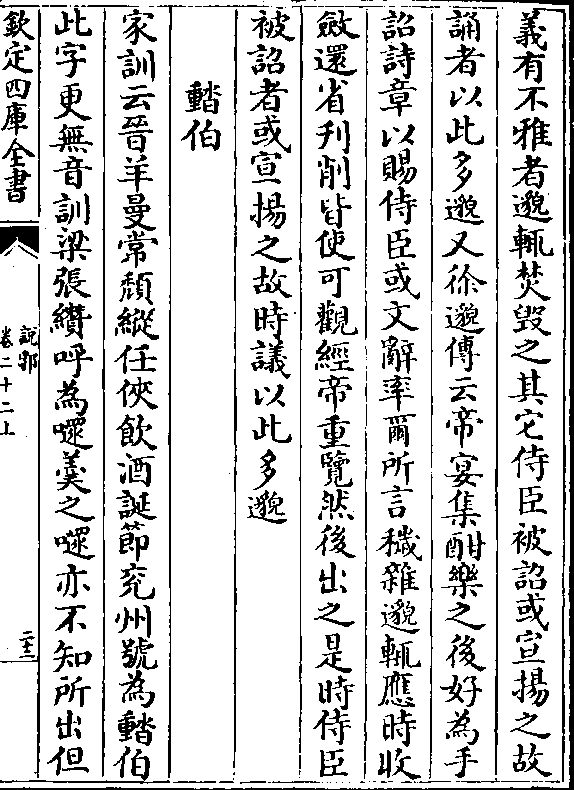 義有不雅者邈輒焚毀之其它侍臣被詔或宣揚之故
誦者以此多邈又徐邈傳云帝宴集酣樂之後好為手
詔詩章以賜侍臣或文辭率爾所言穢雜邈輒應時收
斂還省刋削皆使可觀經帝重覽然後出之是時侍臣
被詔者或宣揚之故時議以此多邈
䵬伯
家訓云晉羊曼常頽縱任俠飲酒誕節兖州號為䵬伯
此字更無音訓梁張纘呼為嚃羹之嚃亦不知所出但
欽定四庫全書
說郛
卷二十二上
二十三